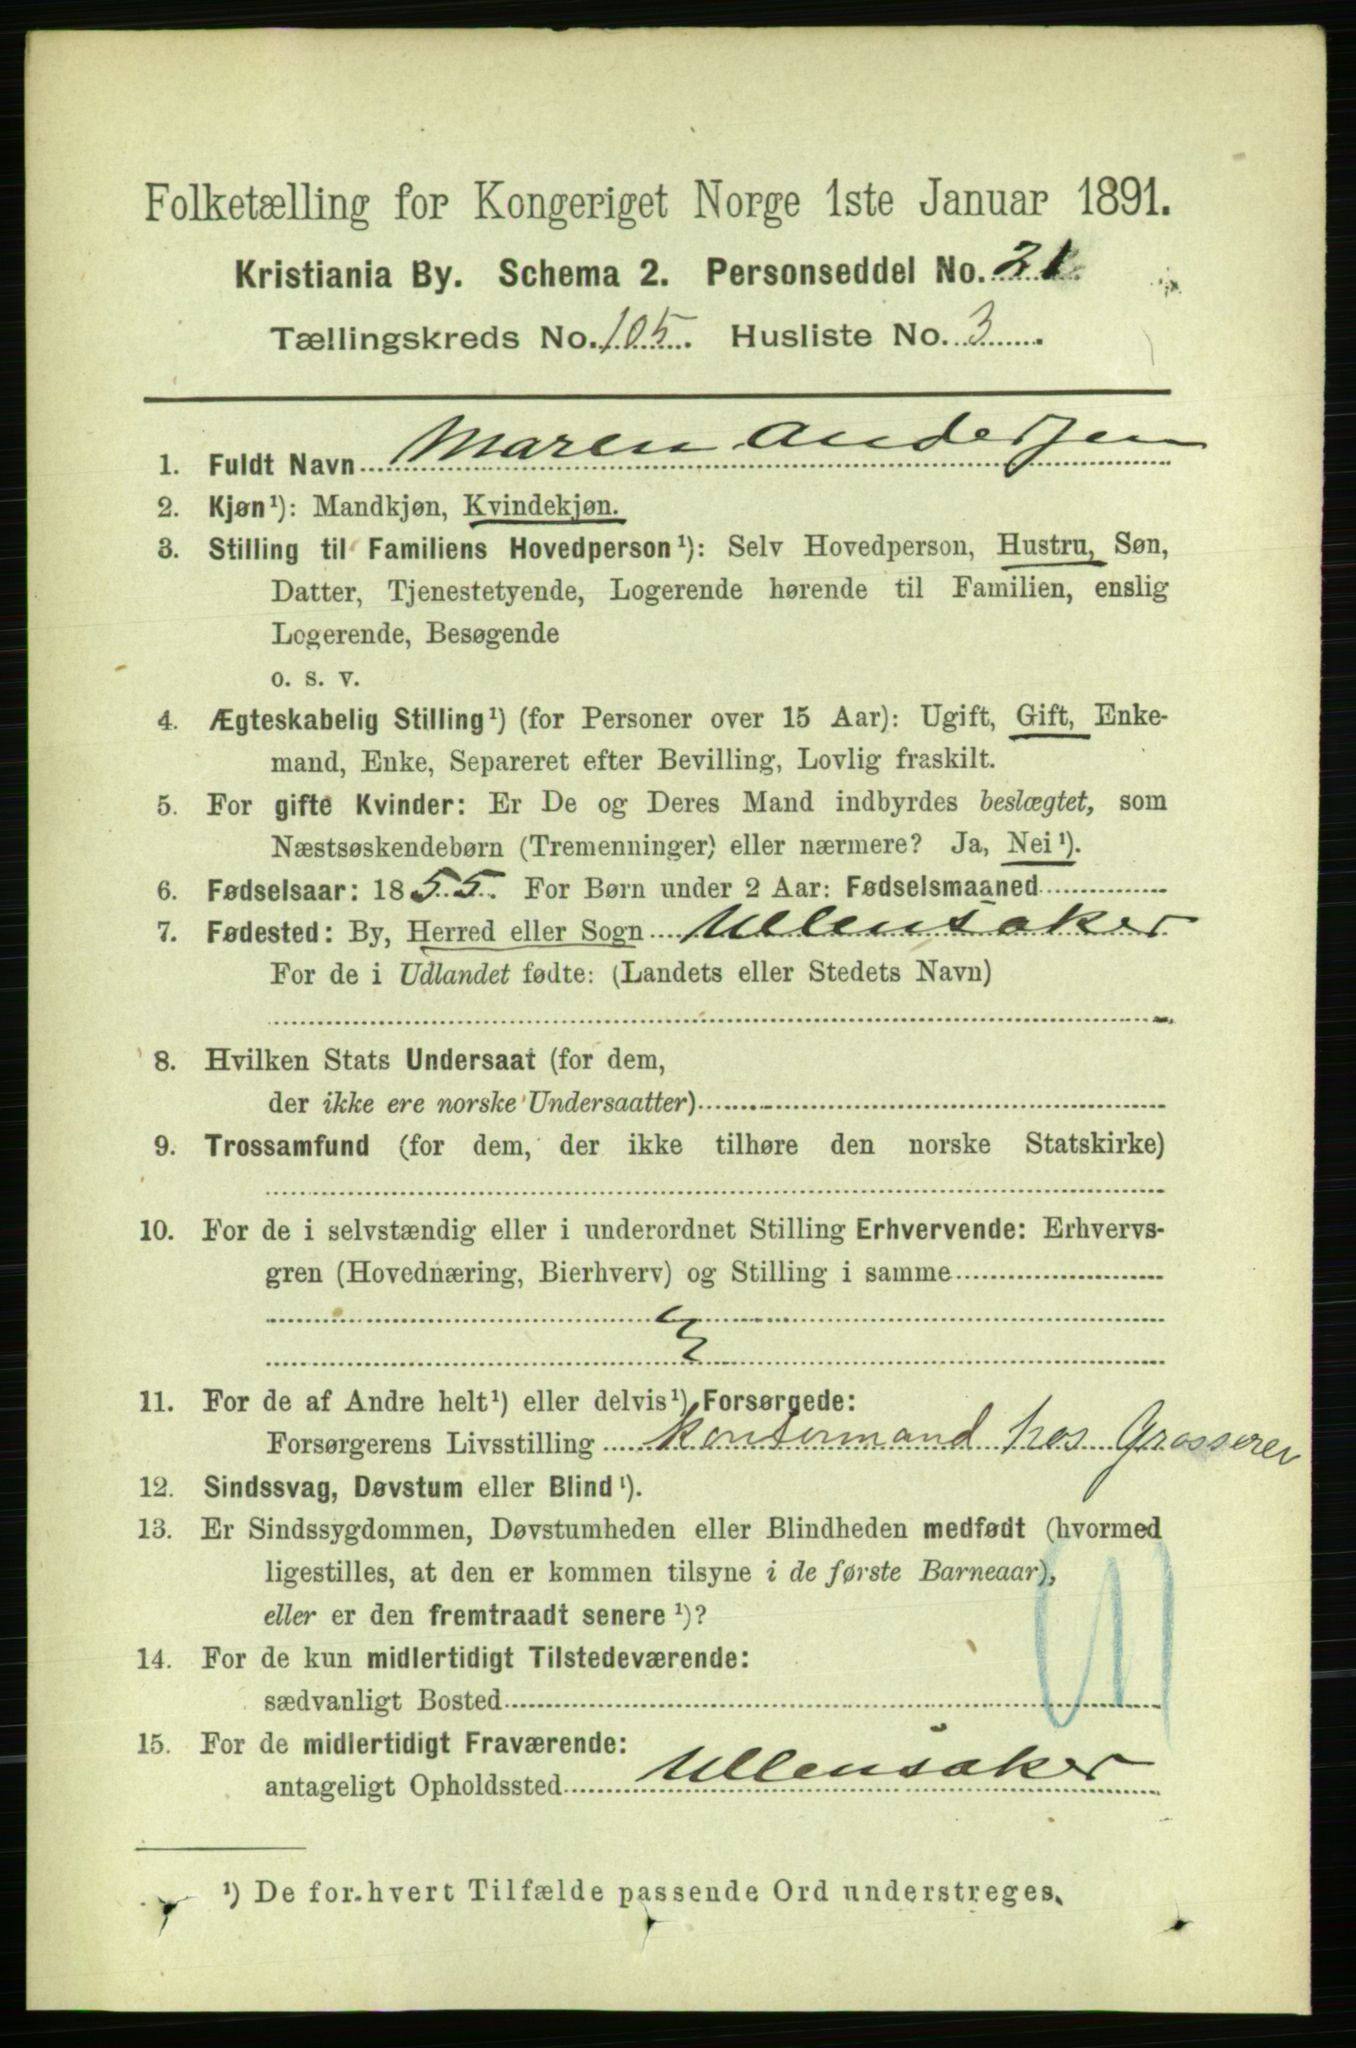 Folketælling for Kongeriget Norge 1ste Januar 1891.
Kristiania By. Schema 2. Personseddel No. 21.
Tællingskreds No. 105. Husliste No. 3.
1. Fuldt Navn Maren Andersen
2. Kjøn¹): Mandkjøn, Kvindekjøn.
3. Stilling til Familiens Hovedperson¹): Selv Hovedperson, Hustru, Søn,
Datter, Tjenestetyende, Logerende hørende til Familien, enslig
Logerende, Besøgende
o. s. v.
4. Ægteskabelig Stilling¹) (for Personer over 15 Aar): Ugift, Gift, Enke-
mand, Enke, Separeret efter Bevilling, Lovlig fraskilt.
5. For gifte Kvinder: Er De og Deres Mand indbyrdes beslægtet, som
Næstsøskendebørn (Tremenninger) eller nærmere? Ja, Nei¹).
6. Fødselsaar: 1855. For Børn under 2 Aar: Fødselsmaaned
7. Fødested: By, Herred eller Sogn Ullensaker
For de i Udlandet fødte: (Landets eller Stedets Navn)
8. Hvilken Stats Undersaat (for dem,
der ikke ere norske Undersaatter)
9. Trossamfund (for dem, der ikke tilhøre den norske Statskirke)
10. For de i selvstændig eller i underordnet Stilling Erhvervende: Erhvervs-
gren (Hovednæring, Bierhverv) og Stilling i samme
11. For de af Andre helt¹) eller delvis¹) Forsørgede:
Forsørgerens Livsstilling Kontormand hos Grosserer
12. Sindssvag, Døvstum eller Blind¹).
13. Er Sindssygdommen, Døvstumheden eller Blindheden medfødt (hvormed
ligestilles, at den er kommen tilsyne i de første Barneaar),
eller er den fremtraadt senere¹)?
14. For de kun midlertidigt Tilstedeværende:
sædvanligt Bosted
15. For de midlertidigt Fraværende:
antageligt Opholdssted Ullensaker
¹) De for hvert Tilfælde passende Ord understreges.